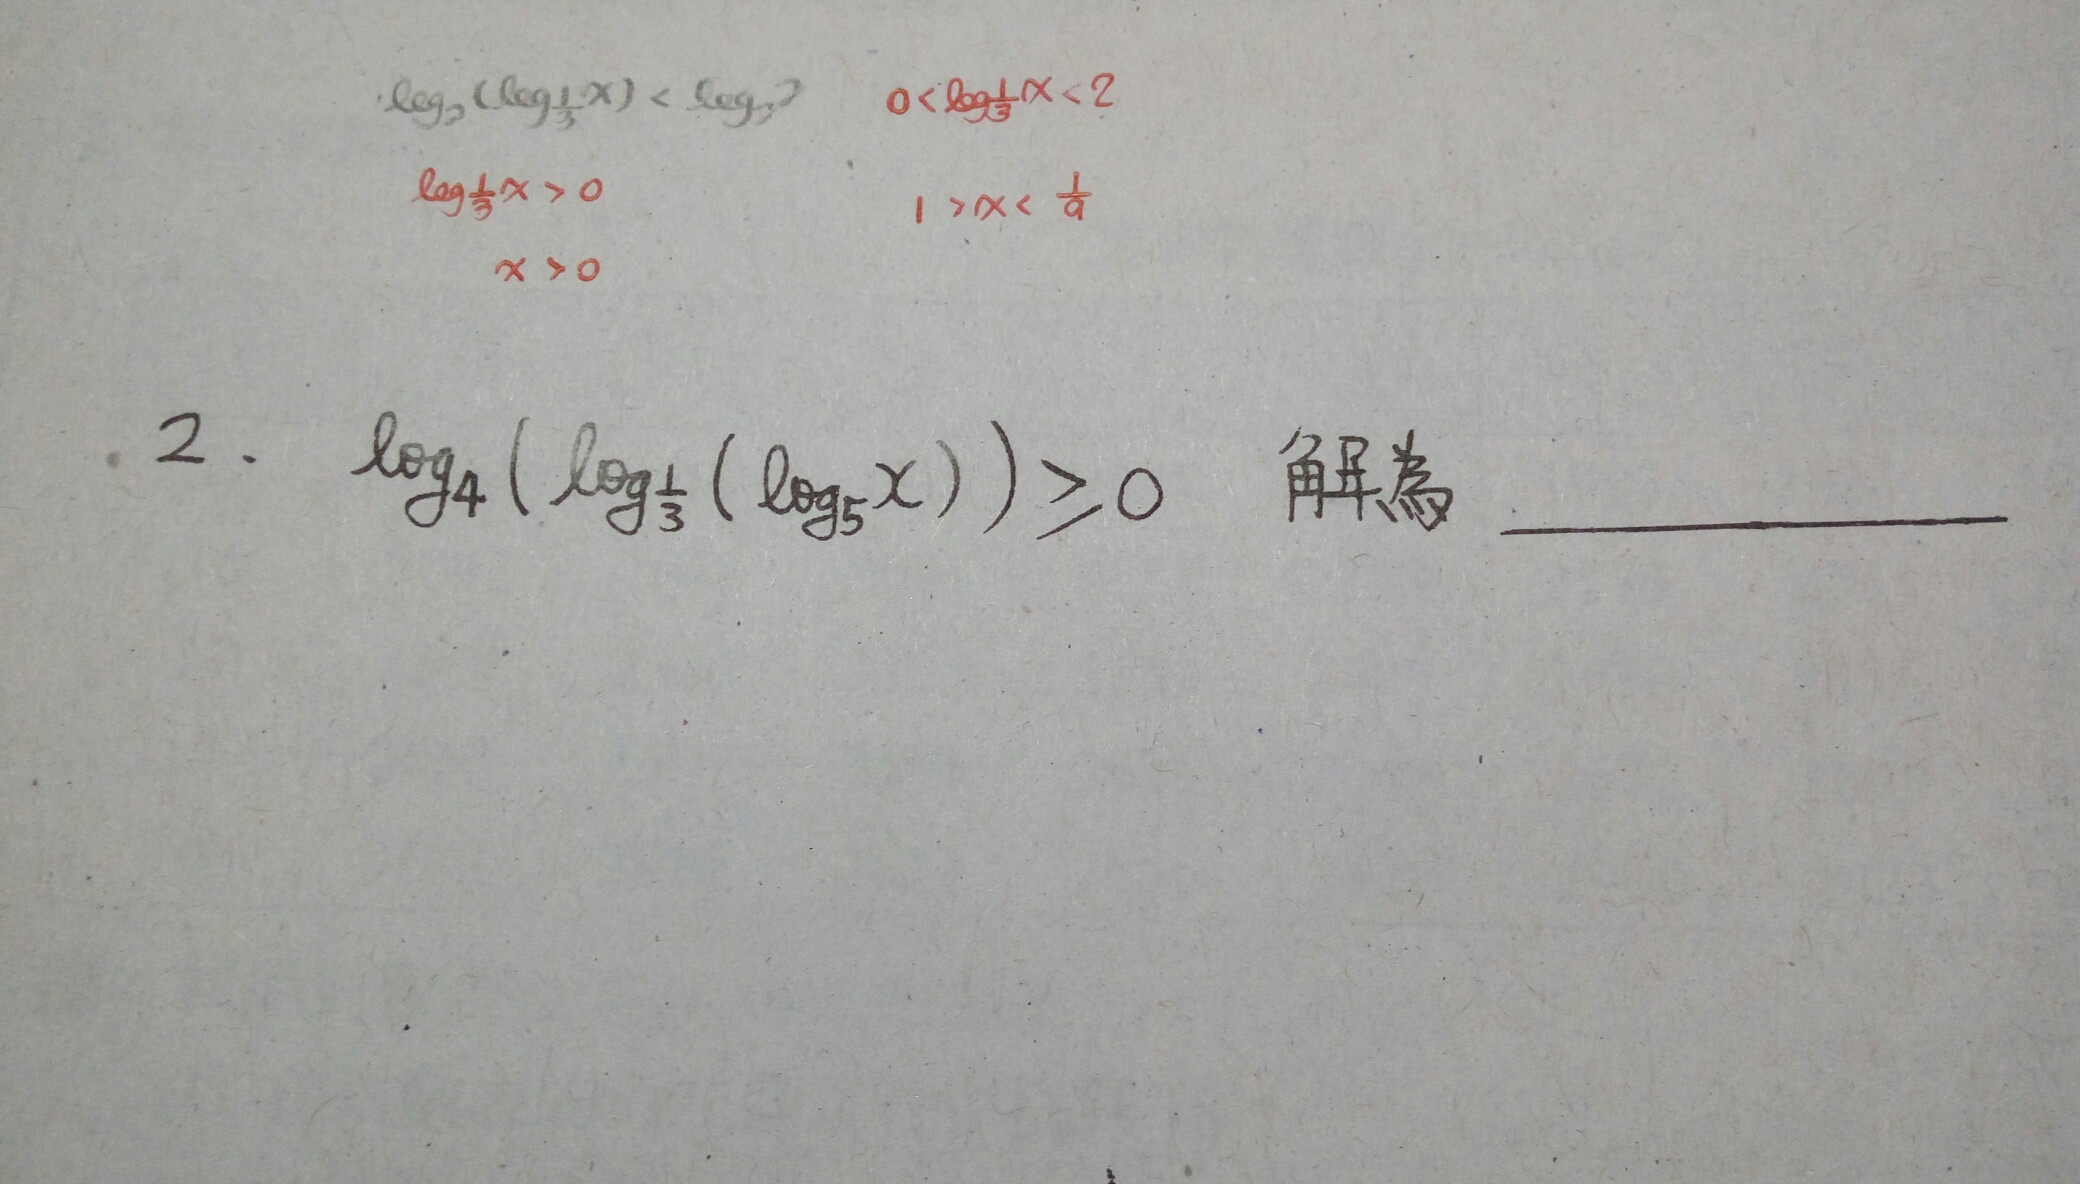 log₂(log_{1/3}x) < log₂2 0<log_{1/3}x<2
log_{1/3}x > 0 1 >x< 1/9
x > 0
2. log₄(log_{1/3}(log₅x)) ≥ 0 解為